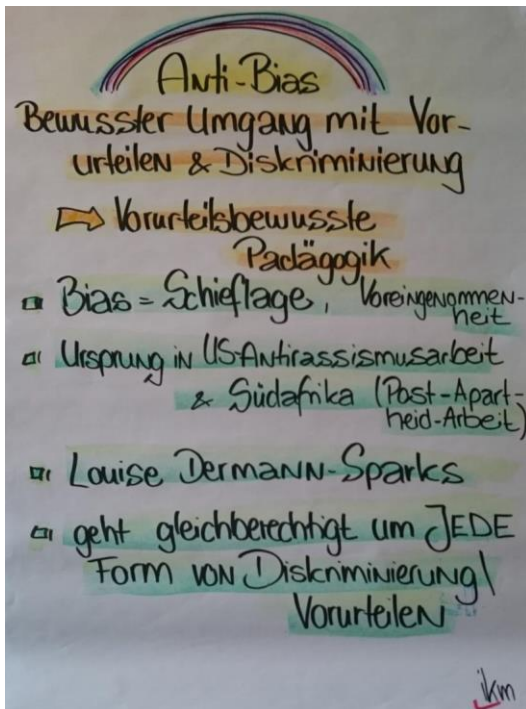 Anti-Bias
Bewusster Umgang mit Vor-
urteilen & Diskriminierung
Vorurteilsbewusste
Pädagogik
Bias = Schieflage, Voreingenommen-
heit
Ursprung in US-Antirassismusarbeit
& Südafrika (Post-Apart-
heid-Arbeit)
Louise Dermann-Sparks
geht gleichberechtigt um JEDE
Form von Diskriminierung/
Vorurteilen
ikm